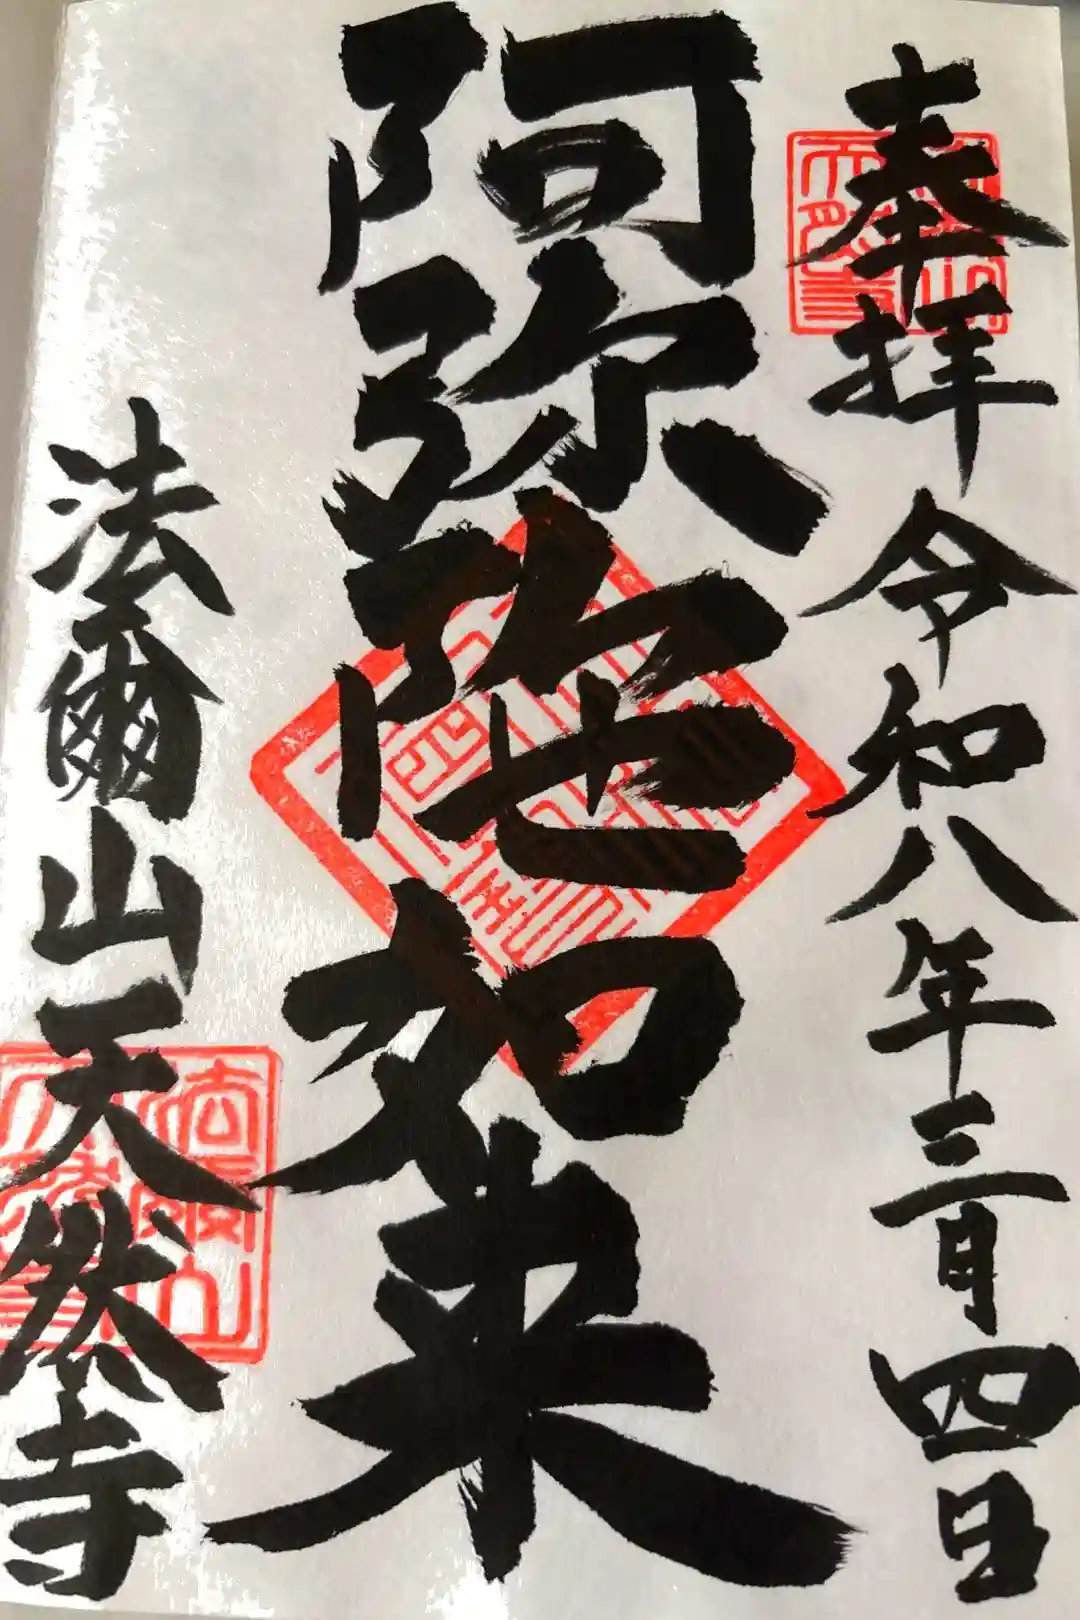 奉拝 令和八年三月四日
阿弥陀如来
法爾山天然寺